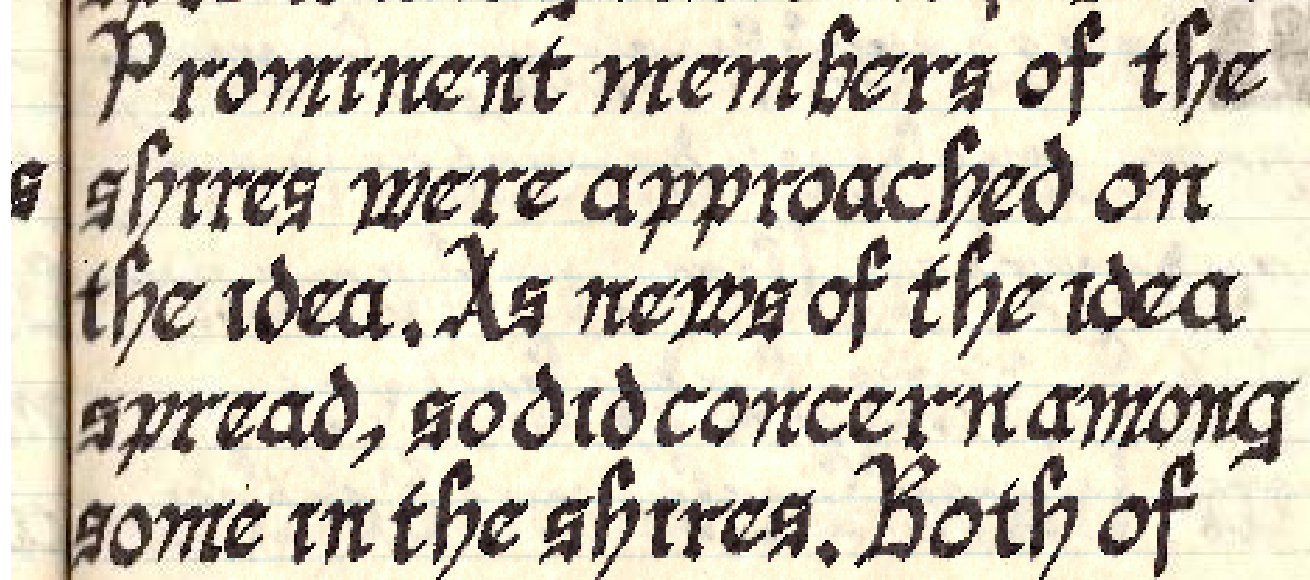 Prominent members of the
shires were approached on
the idea. As news of the idea
spread, so did concern among
some in the shires. Both of